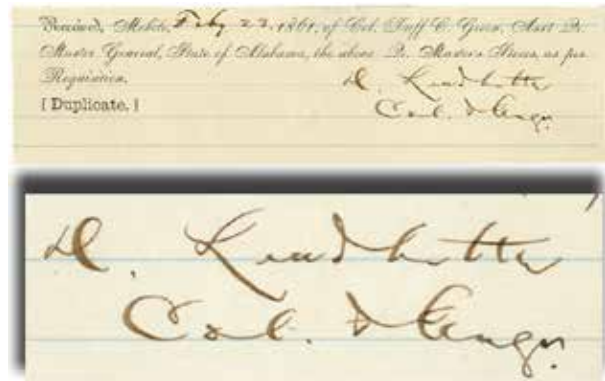 Received, Mobile, Feby 22, 1861, of Col. Duff C. Green, Asst Qr.
Master General, State of Alabama, the above Qr. Masters Stores, as per
Requisition.
D. Leadbetter
[Duplicate.]
Col. & Engr.
D. Leadbetter
Col. & Engr.